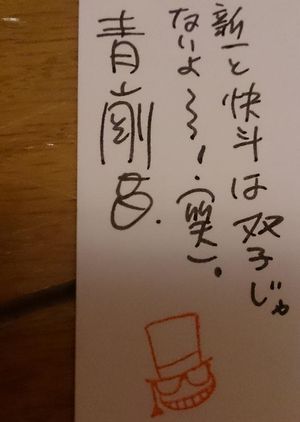 新一と快斗は双子じゃ
ないよ〜〜！（笑）。
青剛昌.